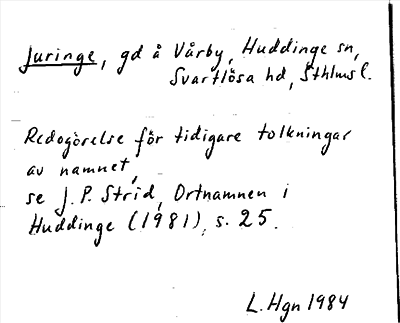 Juringe, gd å Vårby, Huddinge sn,
Svartlösa hd, Sthlms l.
Redogörelse för tidigare tolkningar
av namnet,
se J. P. Strid, Ortnamnen i
Huddinge (1981), s. 25.
L. Hgn 1984